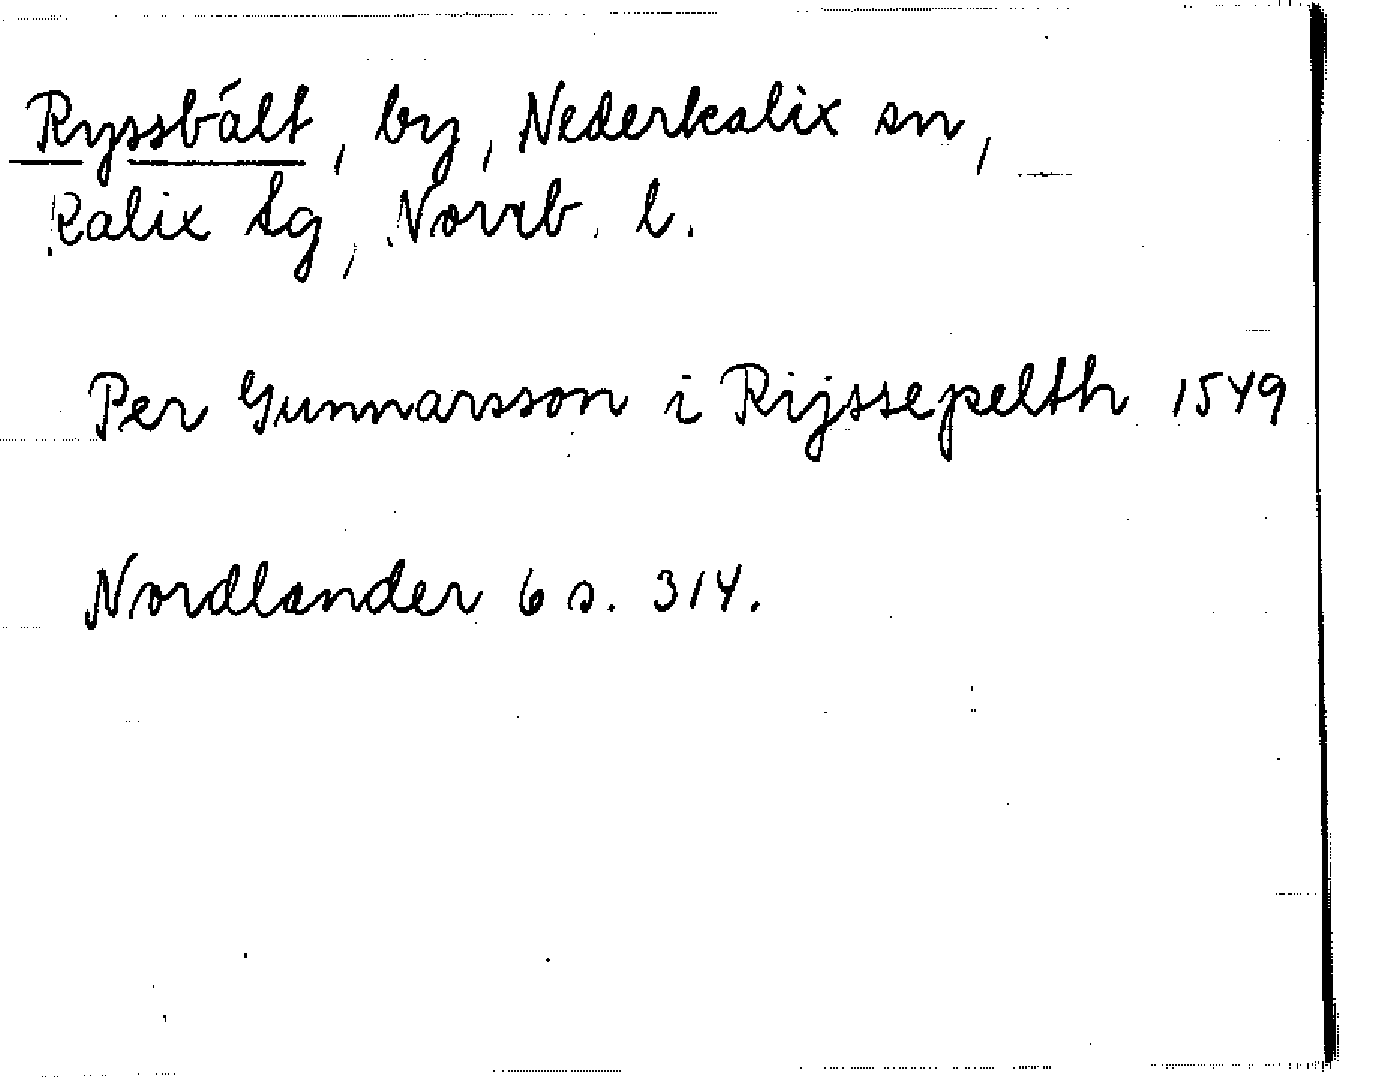 Ryssbält, by, Nederkalix sn,
Kalix tg, Norrb. l.
Per Gunnarsson i Rijssepelth 1549
Nordlander 6 s. 314.